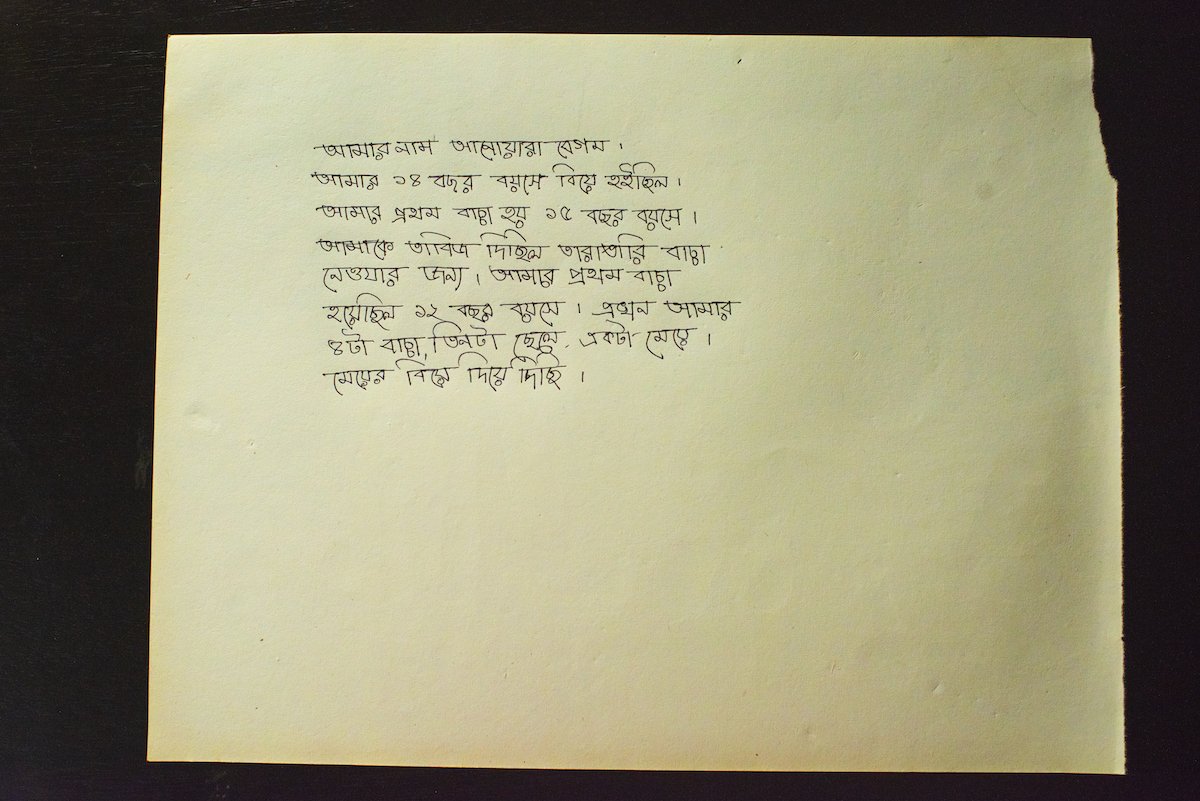 আমার নাম আনোয়ারা বেগম ।
আমার ১৪ বছর বয়সে বিয়ে হইছিল ।
আমার প্রথম বাচ্চা হয় ১৫ বছর বয়সে ।
আমাকে তাবিজ দিছিল তারাতারি বাচ্চা
নেওয়ার জন্য । আমার প্রথম বাচ্চা
হয়েছিল ১২ বছর বয়সে । এখন আমার
৪টা বাচ্চা, তিনটা ছেলে, একটা মেয়ে ।
মেয়ের বিয়ে দিয়ে দিছি ।